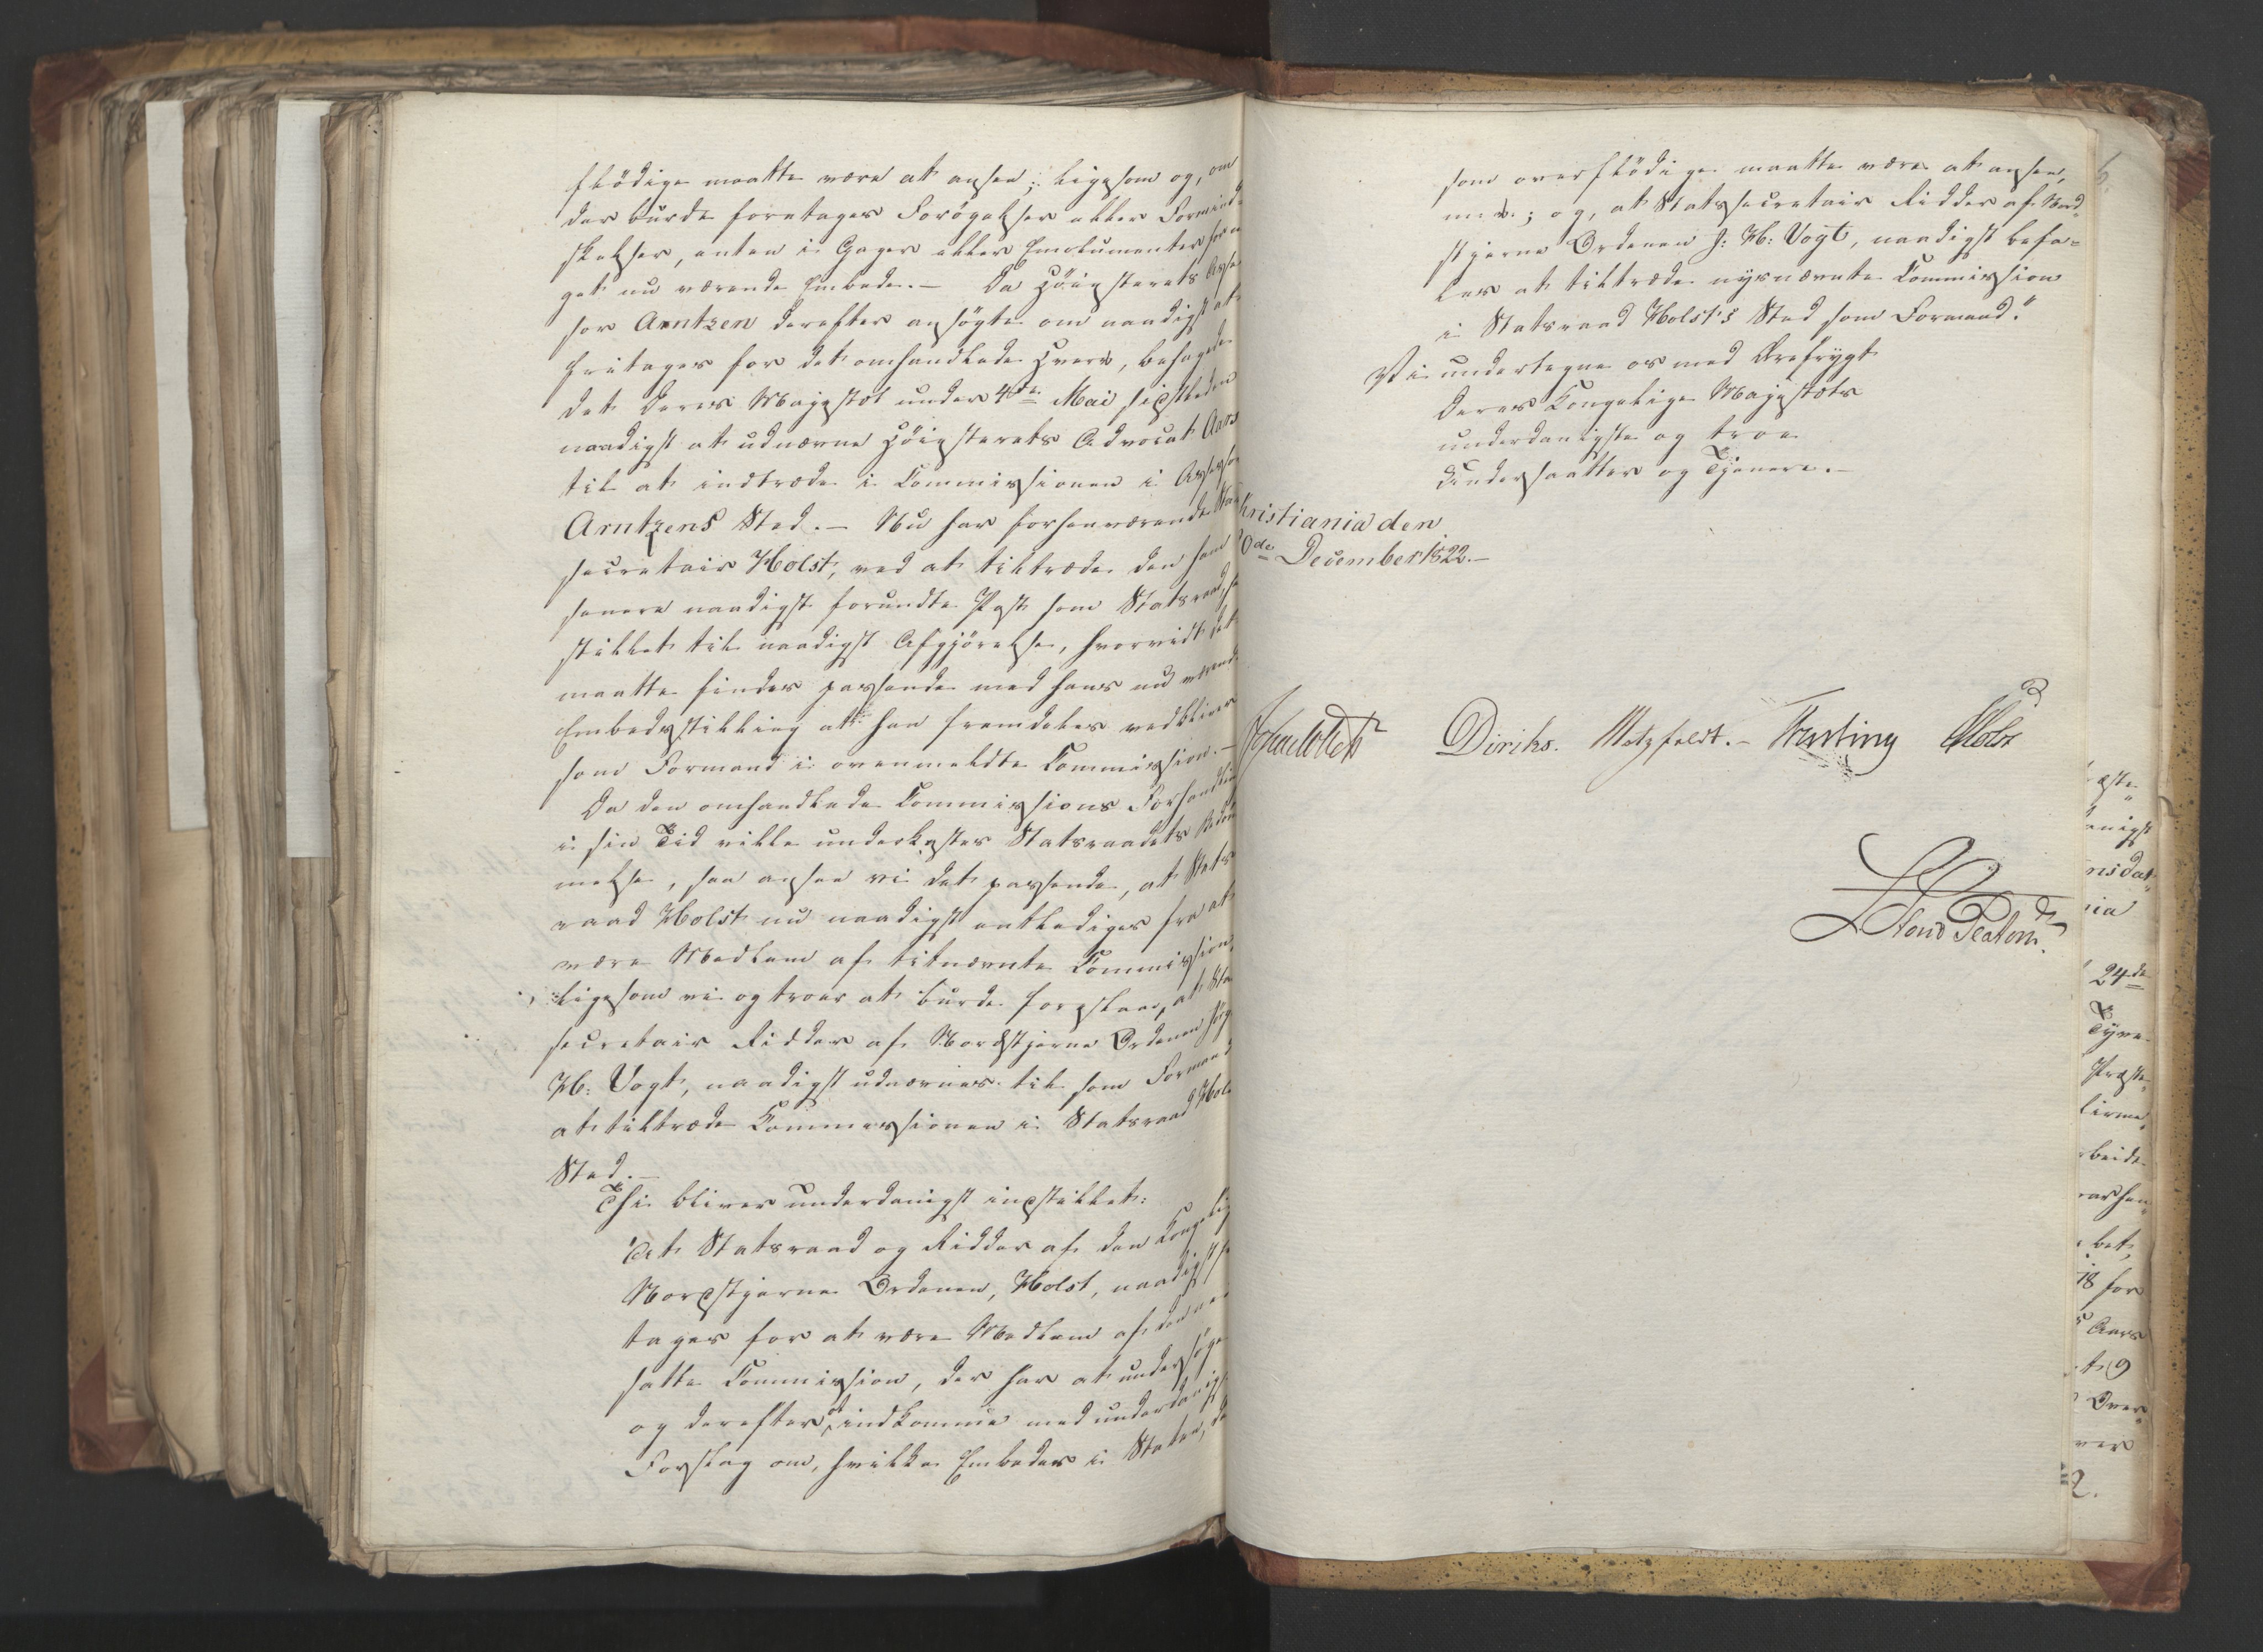 flödige maatte være at ansee; ligesom og, om
der burde foretages Forögelser eller Formind-
skelser, enten i Gager eller Emolumenter for no-
get nu værende Embede. — Da Höiesterets Asses-
sor Arntzen derefter ansögte om naadigst at
fritages for det omhandlede Hverv, behagede
det Deres Majestæt under 4de Mai sidstleden
naadigst at udnævne Höiesterets Advocat Aars
til at indtræde i Commissionen i Assessor
Arntzens Sted. — Nu har forhenværende Stats
secretair Holst, ved at tiltræde den ham
senere naadigst forundte Post som Statsraad,
stillet til naadigst Afgjörelse, hvorvidt det
maatte findes passende med hans nu værende
Embedsstilling at han fremdeles vedbliver
som Formand i ovenmeldte Commission. —
Da den omhandlede Commissions Forhandlin
i sin Tid ville underkastes Statsraadets Bedöm
melse, saa ansee vi det passende, at Stats
raad Holst nu naadigst entlediges fra at
være Medlem af bemeldte Commission,
ligesom vi og troer at burde foreslaae, at Stats
secretair Ridder af Nordstjerne Ordenen Jörg
H: Vogt, naadigst udnævnes til som Formand
at tiltræde Commissionen i Statsraad Hols
Sted. —
Thi bliver underdanigst indstillet:
"At Statsraad og Ridder af den Kongelig
Nordstjerne Ordenen, Holst, naadigst fri
tages for at være Medlem af den ned
satte Commission, der har at undersöge
og derefter at indkomme med underdanigst
Forslag om, hvilke Embeder i Staten, der
som overflödige maatte være at ansee,
m: v:; og, at Statssecretair Ridder af Nord-
stjerne Ordenen J: H: Vogt, naadigst befa-
les at tiltræde nysnævnte Commission
i Statsraad Holst's Sted som Formand."
Vi undertegne os med Ærefrygt
Deres Kongelige Majestæts
underdanigste og troe
Undersaatter og Tjenere. —
hristiania den
0de December 1822. —
Diriks. Motzfeldt. — Fasting Holst
24de
Tyve
Præste
beidt
bet,
18 for
Aars
Over
2.